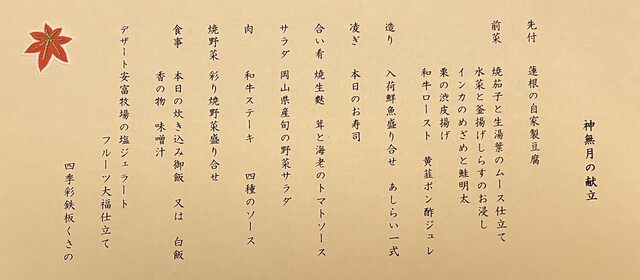 神無月の献立
先付　蓮根の自家製豆腐
前菜　焼茄子と生湯葉のムース仕立て
水菜と釜揚げしらすのお浸し
インカのめざめと鮭明太
栗の渋皮揚げ
和牛ロースト　黄韮ポン酢ジュレ
造り　入荷鮮魚盛り合せ　あしらい一式
凌ぎ　本日のお寿司
合い肴　焼生麩　茸と海老のトマトソース
サラダ　岡山県産旬の野菜サラダ
肉　和牛ステーキ　四種のソース
焼野菜　彩り焼野菜盛り合せ
食事　本日の炊き込み御飯　又は　白飯
香の物　味噌汁
デザート　安富牧場の塩ジェラート
フルーツ大福仕立て
四季彩鉄板くさの